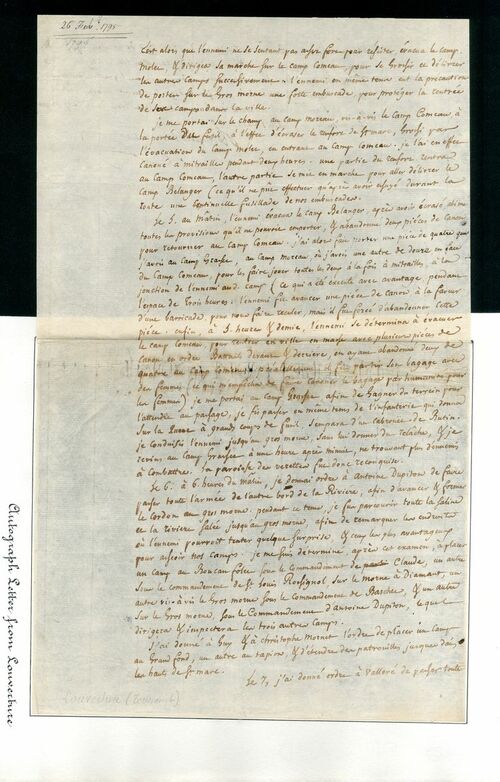 26 Feb.y 1795
1795
C'est alors que l'ennemi ne se sentant pas assez fort pour résister, évacua le camp
Molée, & dirigea sa marche sur le camp Comeau, pour se grossir et délivrer
les autres camps successivement. l'ennemi en même tems eut la précaution
de poster sur le Gros morne une forte embuscade, pour protéger la rentrée
de ses camps dans la ville.
je me portai sur le champ, au camp moreau, vis-à-vis le camp Comeau, à
la portée du fusil, à l'effet d'écraser le renfort de St marc, Grossi par
l'évacuation du Camp molée, en entrant au Camp Comeau. je l'ai en effet
Canoné à mitraille pendant deux heures: une partie du renfort rentra
au Camp Comeau, l'autre partie se mit en marche pour aller délivrer le
Camp Belanger (ce qu'il ne put effectuer qu'après avoir essuyé durant la
route une continuelle fusillade de nos embuscades.
Le 5. au matin, l'ennemi évacua le camp Belanger, après avoir écrasé
toutes les provisions qu'il ne pouvoit emporter, & abandonné deux pièces de canon
pour retourner au Camp Comeau. j'ai alors fait porter une pièce de quatre que
j'avois au Camp Grasse, au Camp moreau, où j'avois une autre de douze en face
du Camp Comeau, pour les faire jouer toutes les deux à la fois à mitraille à la
jonction de l'ennemi aud. camp (ce qui a été exécuté avec avantage pendant
l'espace de Trois heures: l'ennemi fit avancer une pièce de canon à la faveur
d'une barricade, pour nous faire reculer, mais il fut forcé d'abandonner cette
pièce: enfin, à 5. heures & demie, l'ennemi se détermina à évacuer
le Camp Comeau, pour rentrer en ville en masse avec plusieurs pièces de
Canon en ordre Bataille devant & derrière, en ayant abandonné deux de
quatre au camp Comeau: préalablement il fit partir son bagage avec
des femmes (ce qui m'empêcha de faire canoner le bagage par humanité pour
les femmes) je me portai au Camp Grasse afin de Gagner du terrein pour
l'attendre au passage, je fis passer en même tems de l'infanterie qui donna
sur la Queue à grands coups de fusil, s'empara d'un cabrouet de Butin:
je conduisis l'ennemi jusqu'au gros morne, sans lui donner du relâche, & je
revins au Camp Grasse à une heure après minuit, ne trouvant plus d'ennemis
à combattre. La paroisse des verettes fut donc reconquise.
Le 6. à 6. heures du matin, je donnai ordre à Antoine Dupiton de faire
passer toute l'armée de l'autre bord de la Rivière, afin d'avancer & former
le cordon au gros morne. pendant ce tems, je fus parcourir toute la Saline
et la rivière Salée jusqu'au gros morne, afin de remarquer les endroits
où l'ennemi pourroit tenter quelque surprise, & ceux les plus avantageux
pour asseoir nos camps. je me suis déterminé, après cet examen, à placer
un camp au Boucan folée sous le commandement de Claude, un autre
sous le commandement de St Louis Rossignol sur le Morne à Diamant, un
autre vis-à-vis le Gros morne sous le Commandement de Barthe, & un autre
sur le Gros morne, sous le Commandement d'Antoine Dupiton, lequel
dirigera & inspectera les trois autres Camps.
J'ai donné à Guy & à Christophe Mornet l'ordre de placer un camp
au Grand fond, un autre au tapion, & d'étendre des patrouilles jusques dans
les hauts de St marc.
Le 7, j'ai donné ordre à Valleré de passer toute
Louverture (Toussaint)
Autograph Letter from Louverture